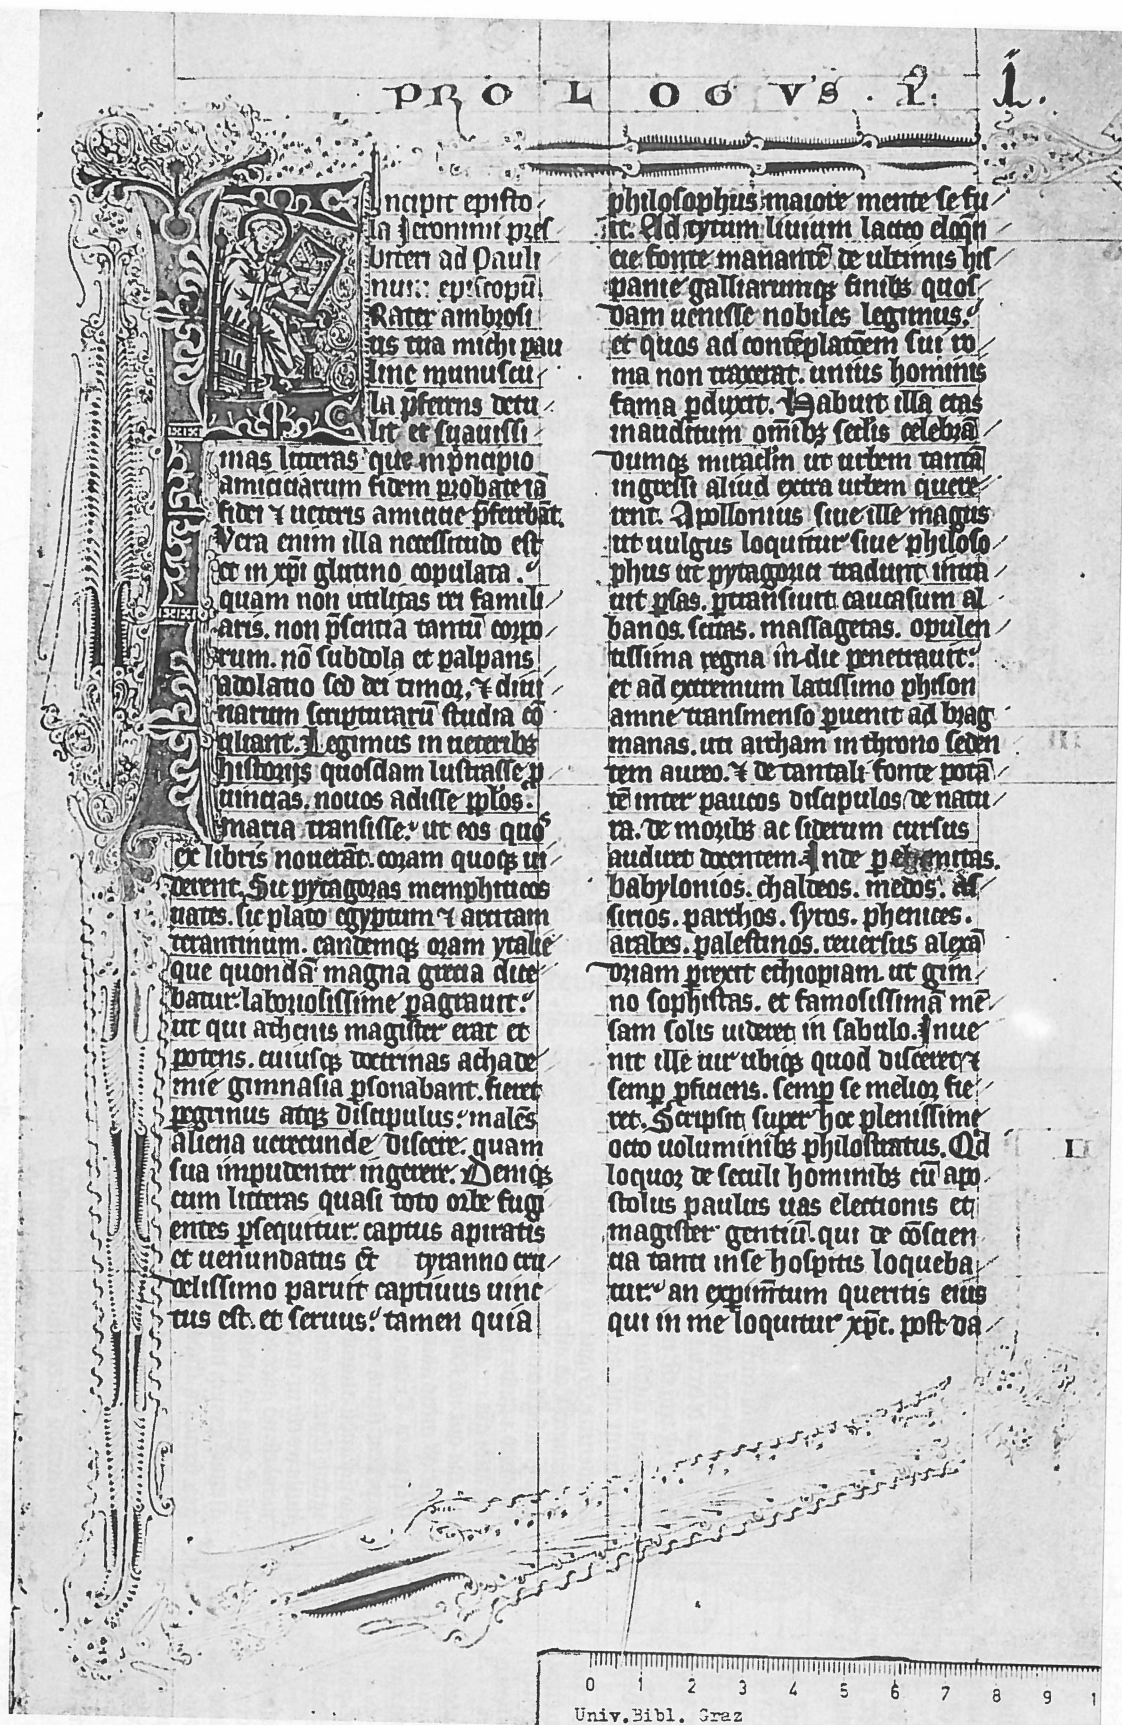 PROLOGVS. P. I.
Incipit episto
la Jeronimi pres
biteri ad Pauli
num episcopū
Rater ambrosi
us tua michi pau
linc munuscu
la p̄ferens detu
lit et suauissi
mas litteras que in p̄ncipio
amiciciarum fidem probate iā
fidei ⁊ ueteris amicicie p̄ferebāt.
Vera enim illa necessitudo est
et in xp̄i glutino copulata.
quam non utilitas rei famili
aris. non p̄sentia tantū corpo
rum. nō subdola et palpans
adolatio sed dei timor. ⁊ diui
narum scripturarū studia cō
ciliant. Legimus in ueteribꝫ
historijs quosdam lustrasse ꝓ
uincias. nouos adisse pp̄los.
maria transisse. ut eos quos
ex libris nouerāt. coram quoqꝫ ui
derent. Sic pytagoras memphiticos
uates. sic plato egyptum ⁊ arcitam
terantinum. eandemqꝫ oram ytalie
que quondā magna grecia dice
batur laboriosissime ꝑagrauit.
ut qui athenis magister erat et
potens. cuiusqꝫ doctrinas achade
mie gimnasia ꝑsonabant. fieret
ꝑegrinus atqꝫ discipulus. malēs
aliena uerecunde discere. quam
sua impudenter ingerere. Deniqꝫ
cum litteras quasi toto orbe fugi
entes ꝑsequitur. captus apiratis
et uenundatus ēt tyranno cru
delissimo paruit captiuus uinc
tus est. et seruus. tamen quia
philosophus maiore mente se fu
it. Ad tytum liuium lacteo eloqn
cie fonte manantē de ultimis his
panie galliarumqꝫ finibꝫ quos
dam uenisse nobiles legimus.
et quos ad contēplatōem sui ro
ma non traxerat. unius hominis
fama ꝑduxit. Habuit illa etas
inauditum om̄ibꝫ seclis celebrā
dumqꝫ miraclm ut urbem tantā
ingressi aliud extra urbem quere
rent. Apollonius siue ille magus
ut uulgus loquitur siue philoso
phus ut pytagorici tradunt intra
uit ꝑsas. ꝑtransiuit caucasum al
banos. scitas. massagetas. opulen
tissima regna indie penetrauit.
et ad extremum latissimo phison
amne transmenso ꝑuenit ad brag
manas. uti archam in throno seden
tem aureo. ⁊ de tantali fonte potā
tē inter paucos discipulos de natu
ra. de moribꝫ ac siderum cursus
audiret docentem. Inde ꝑ elamitas.
babylonios. chaldeos. medos. as
sirios. parthos. syros. phenices.
arabes. palestinos. reuersus alexā
driam ꝑrexit ethiopiam. ut gim
no sophistas. et famosissimā mē
sam solis uideret in sabulo. Inue
nit ille uir ubiqꝫ quod disceret ⁊
semꝑ ꝓficiens. semꝑ se melior fie
ret. Scripsit super hoc plenissime
octo uoluminibꝫ philostratus. Qd
loquor de seculi hominibꝫ cū apo
stolus paulus uas electionis et
magister gentiū. qui de cōscien
cia tanti in se hospitis loqueba
tur. an expim̄tum queritis eius
qui in me loquitur xp̄c. post da
III
II
0 1 2 3 4 5 6 7 8 9 1
Univ.Bibl. Graz